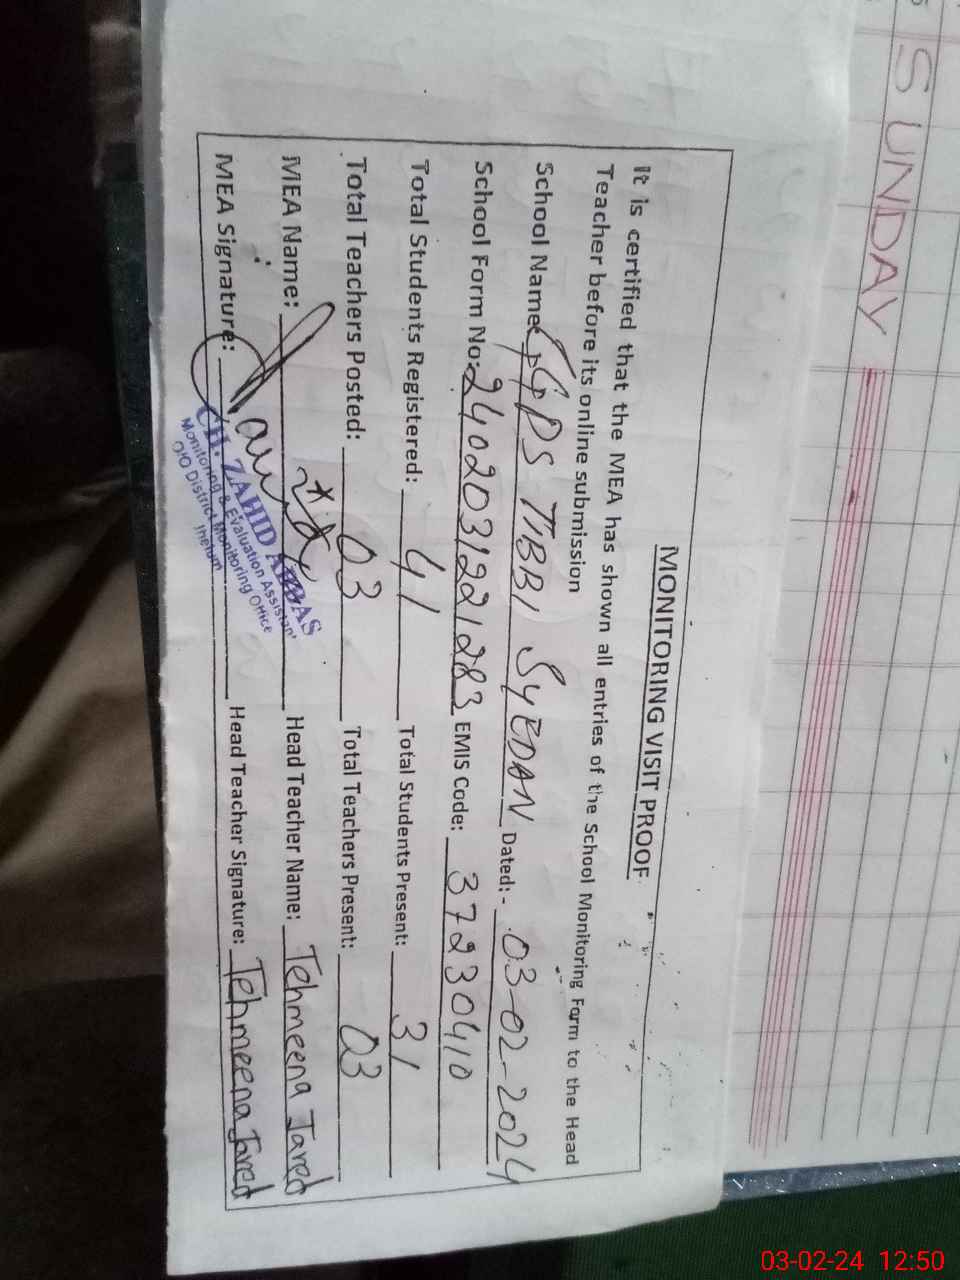 SUNDAY
MONITORING VISIT PROOF
It is certified that the MEA has shown all entries of the School Monitoring Form to the Head
Teacher before its online submission
School Name: GGPS TIBBI SYEDAN Dated:- 03-02-2024
School Form No: 2402031221283 EMIS Code: 37230410
Total Students Registered: 41 Total Students Present: 31
Total Teachers Posted: 03 Total Teachers Present: 03
MEA Name: Head Teacher Name: Tehmeena Javed
MEA Signature: Head Teacher Signature: Tehmeena Javed
CH. ZAHID ABBAS
Monitoring & Evaluation Assistant
O/O District Monitoring Office
Jhelum
03-02-24 12:50